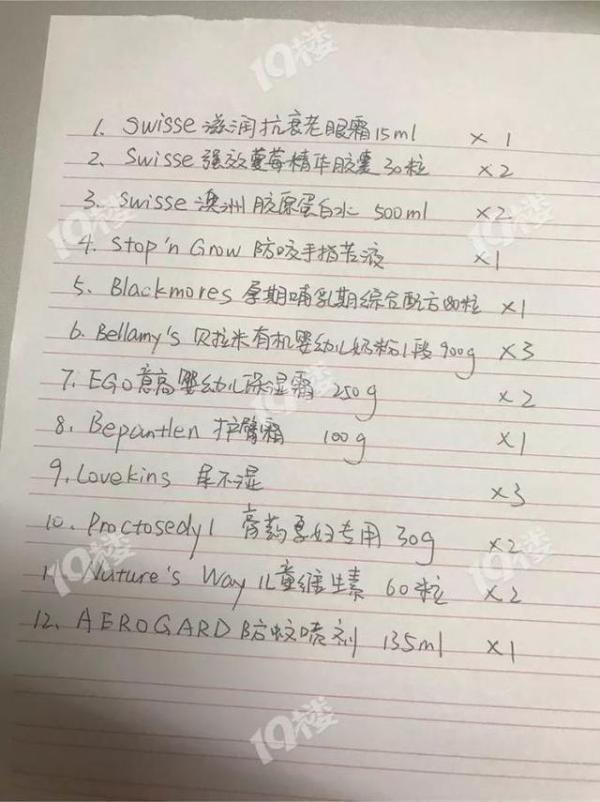 19楼
1. Swisse 滋润抗衰老眼霜15ml ×1
2. Swisse 强效蔓莓精华胶囊30粒 ×2
3、Swisse 澳洲胶原蛋白水 500ml ×2
4. Stop'n Grow 防咬手指苦液 ×1
19楼
5、Blackmores 孕期哺乳期综合配方 粒 ×1
6、Bellamy's 贝拉米有机婴幼儿奶粉1段900g ×3
7、EGO意高婴幼儿保湿霜 250g ×2
8. Bepantlen 护臂霜 100g ×1
9. Lovekins 尿不湿 ×3
10. Proctosedyl 膏药孕妇专用 30g ×2
11 Nuture's Way 儿童维生素 60粒 ×2
12、AEROGARD 防蚊喷剂 135ml ×1
19楼